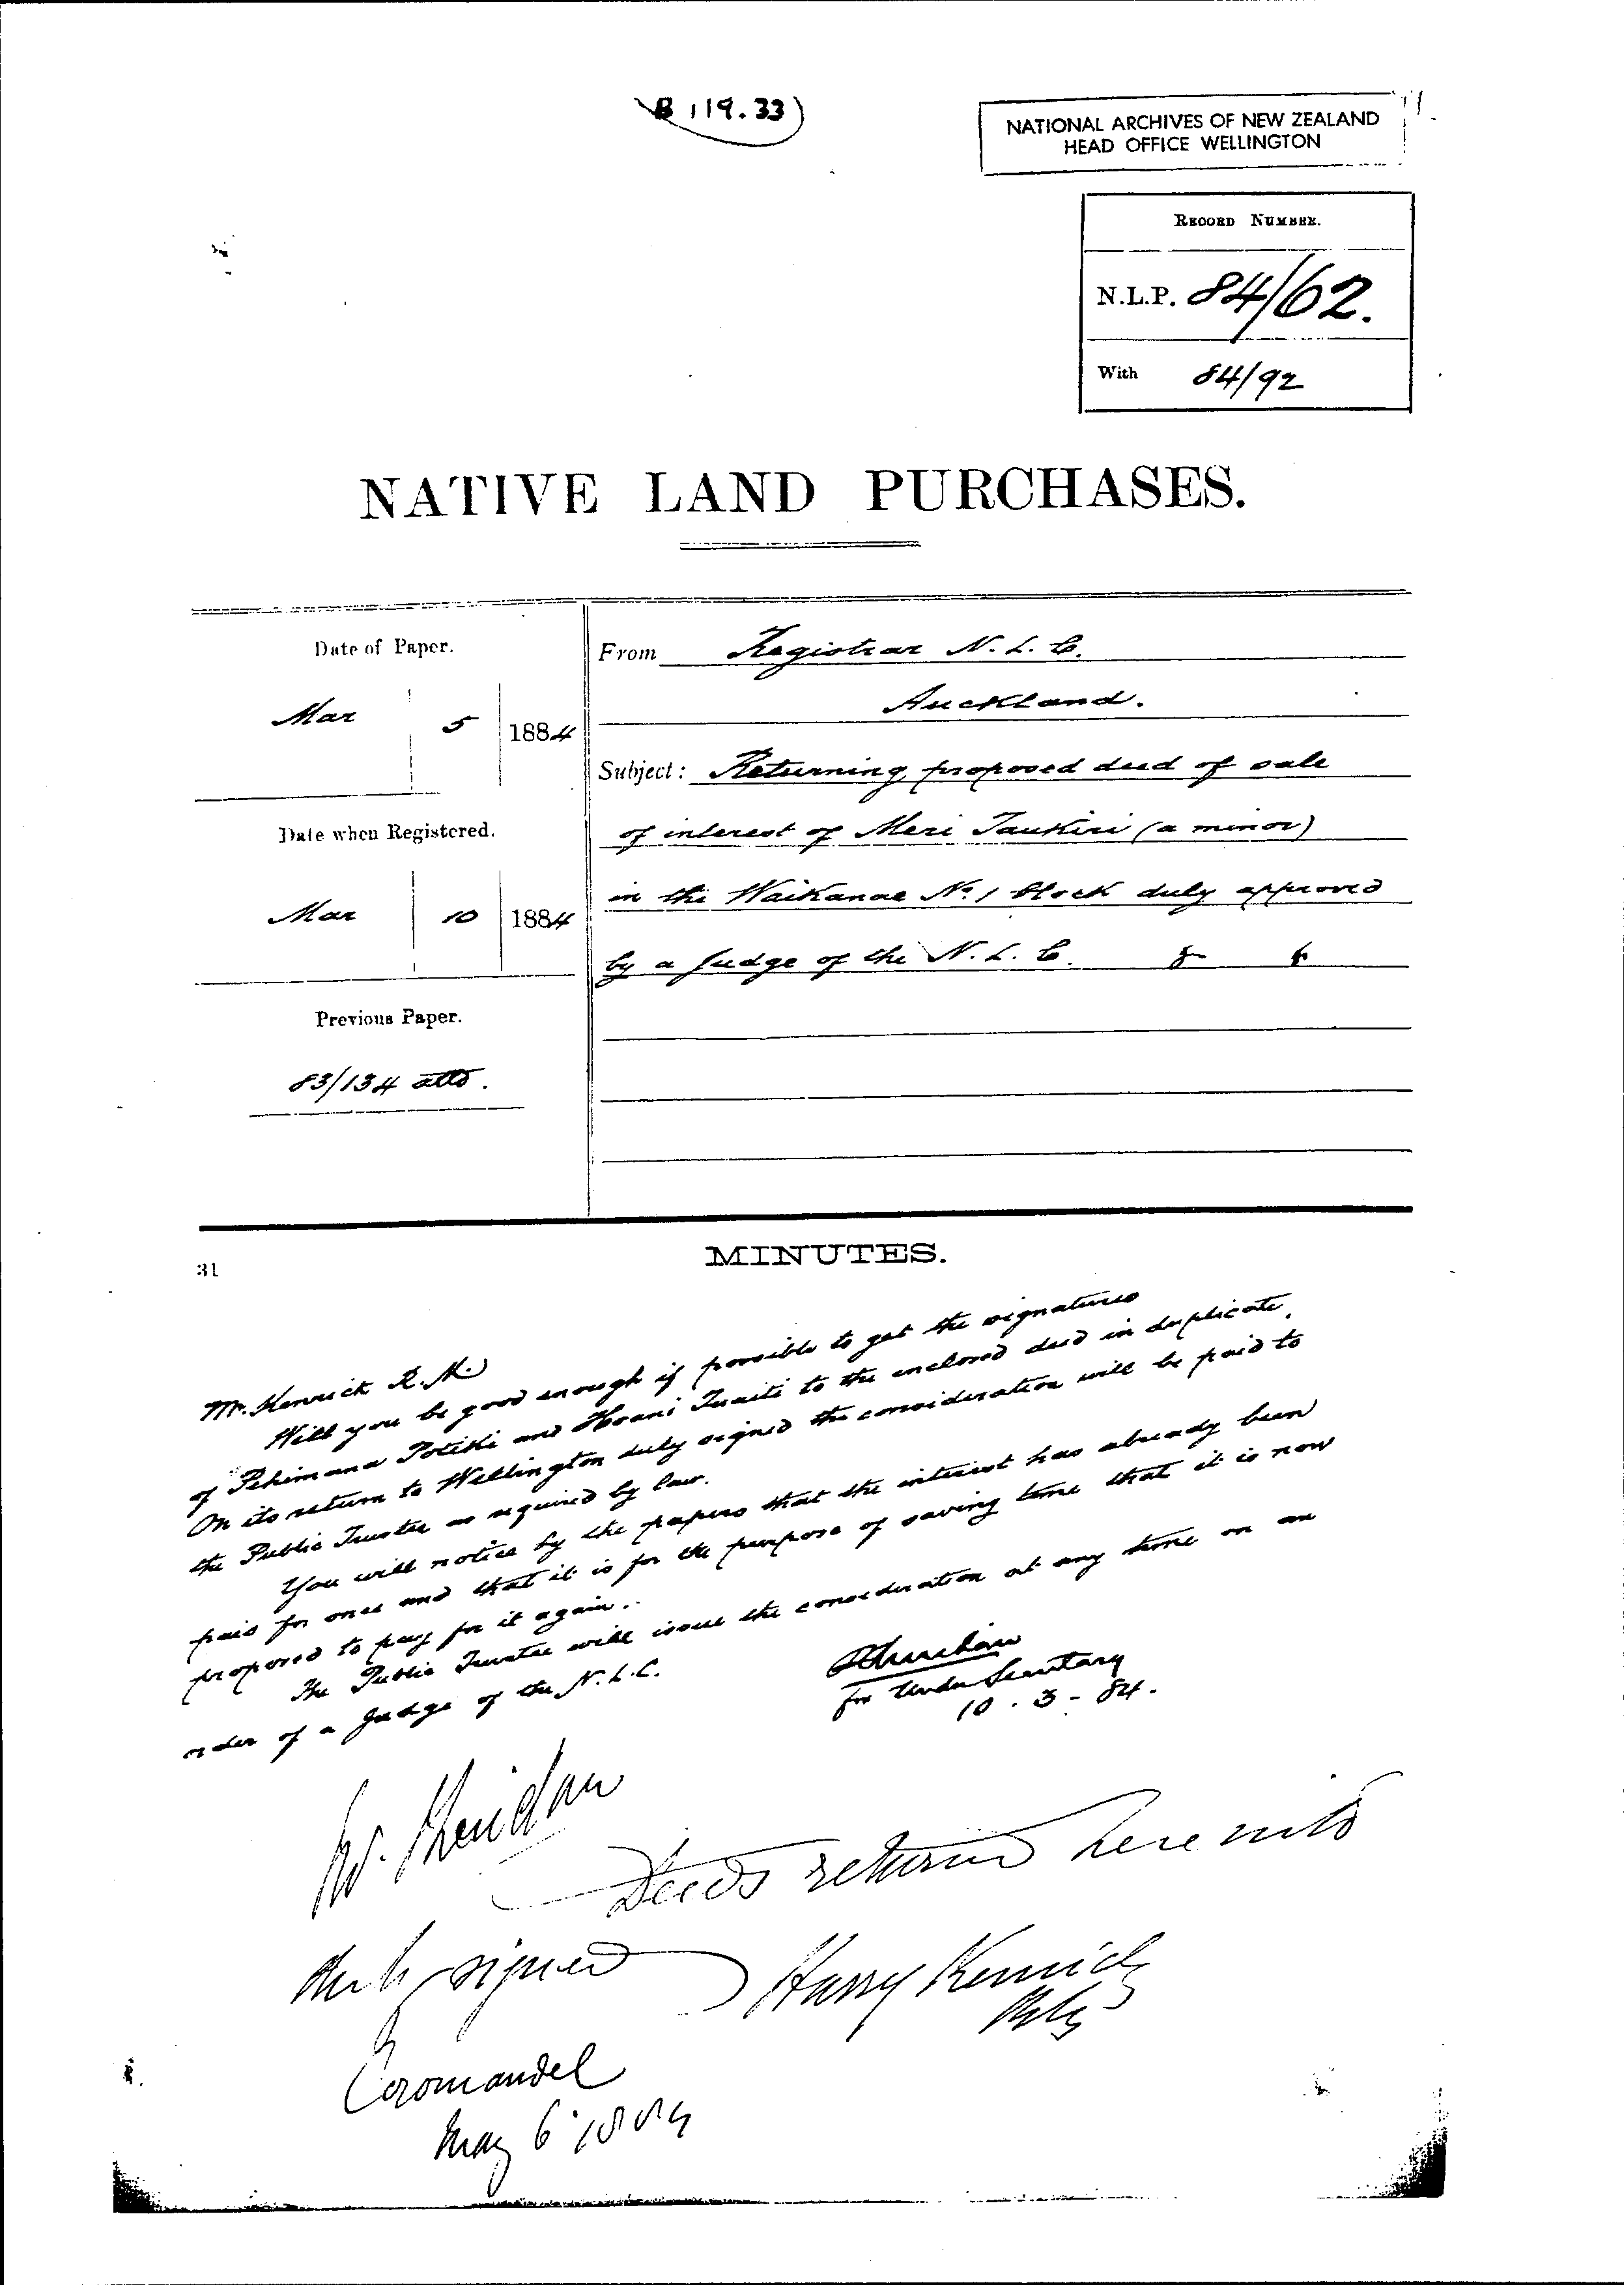 B 119.33
NATIONAL ARCHIVES OF NEW ZEALAND
HEAD OFFICE WELLINGTON
RECORD NUMBER.
N.L.P. 84/62.
With 84/92
NATIVE LAND PURCHASES.
Date of Paper.
Mar 5 1884
Date when Registered.
Mar 10 1884
Previous Paper.
83/134 attd.
From Registrar N. L. C.
Auckland.
Subject: Returning proposed deed of sale
of interest of Meri Taukiri (a minor)
in the Waikanae No. 1 block duly approved
by a Judge of the N. L. C.
MINUTES.
31
Mr. Kenrick R.M.
Will you be good enough if possible to get the signatures
of Pehimana Potiki and Hoani Tuaiti to the enclosed deed in duplicate.
On its return to Wellington duly signed the consideration will be paid to
the Public Trustee as required by law.
You will notice by the papers that the interest has already been
paid for once and that it is for the purpose of saving time that it is now
proposed to pay for it again.
The Public Trustee will issue the consideration at any time on an
order of a Judge of the N.L.C.
for Under Secretary
10 . 3 - 84.
W. Sheridan
Deeds returned herewith
duly signed
Harry Kenrick
RM
Coromandel
May 6 1884